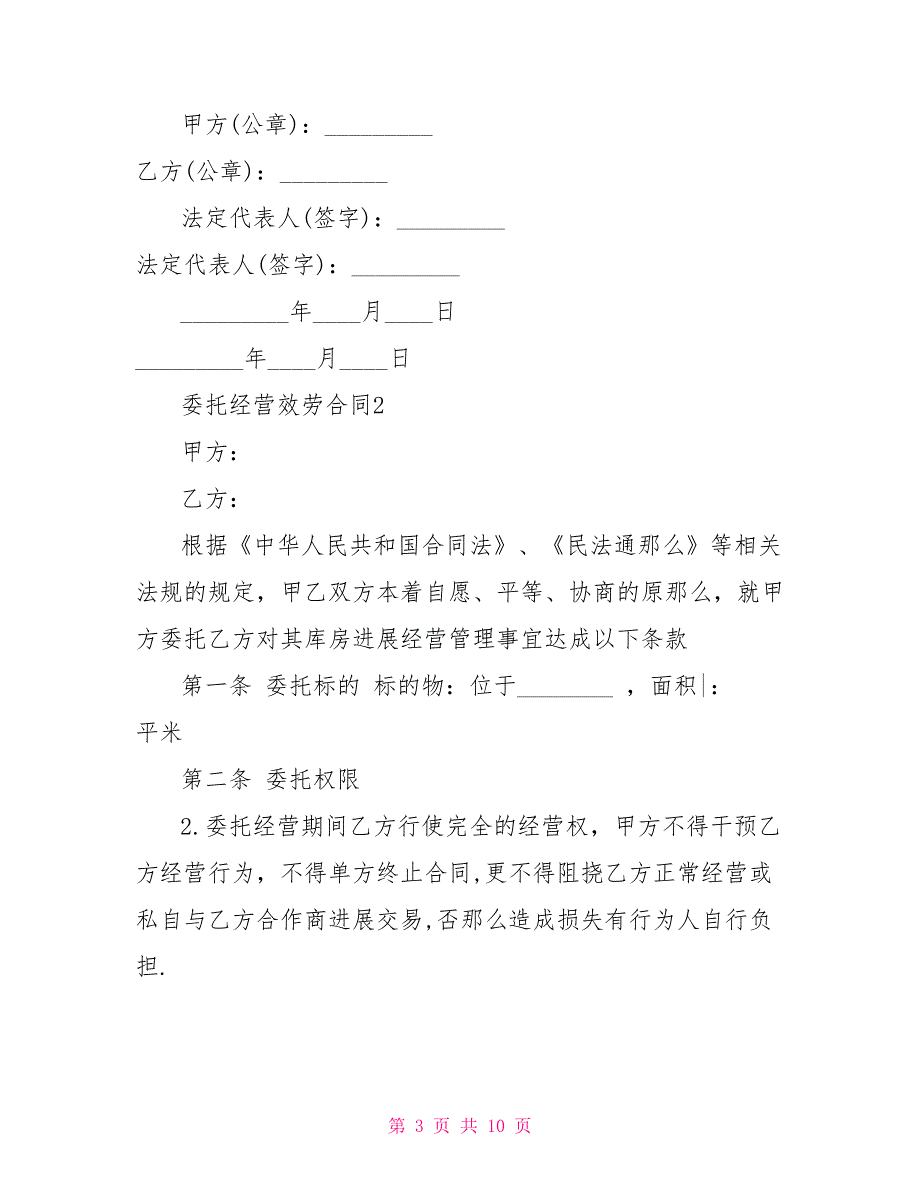 甲方(公章)：_________
乙方(公章)：_________
法定代表人(签字)：_________
法定代表人(签字)：_________
_________年____月____日
_________年____月____日
委托经营效劳合同2
甲方：
乙方：
根据《中华人民共和国合同法》、《民法通那么》等相关
法规的规定，甲乙双方本着自愿、平等、协商的原那么，就甲
方委托乙方对其库房进展经营管理事宜达成以下条款
第一条 委托标的 标的物：位于________ ，面积|：
平米
第二条 委托权限
2.委托经营期间乙方行使完全的经营权，甲方不得干预乙
方经营行为，不得单方终止合同,更不得阻挠乙方正常经营或
私自与乙方合作商进展交易,否那么造成损失有行为人自行负
担.
第 3 页 共 10 页